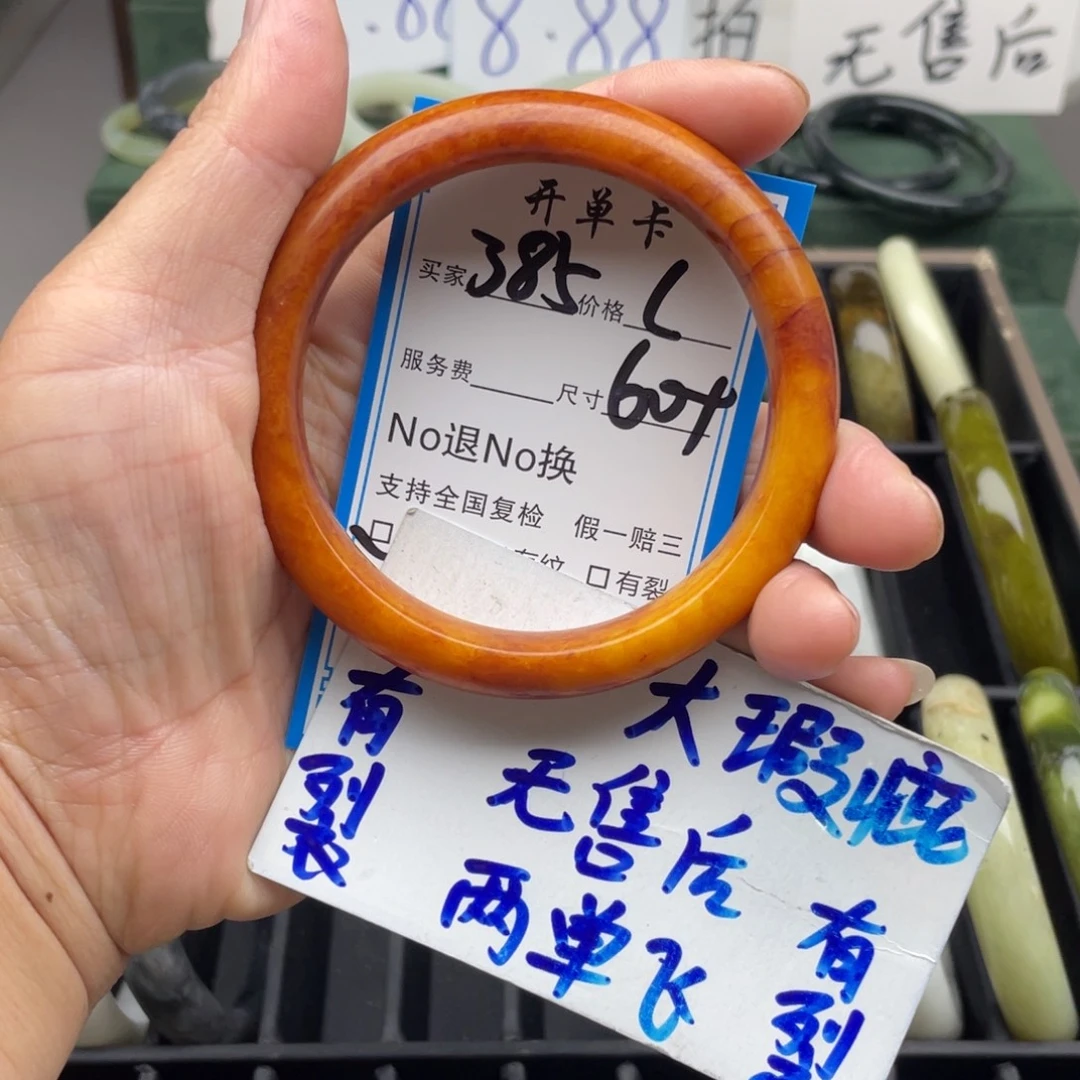 .88
8.88
拍
无售后
开单卡
买家385价格L
服务费 尺寸604
No退No换
支持全国复检 假一赔三
口 有纹 口有裂
有裂
大瑕疵
无售后
两单飞
有裂